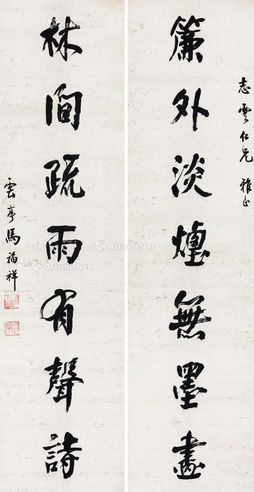 志雲仁兄 雅正
簾外淡煙無墨畫
林間疏雨有聲詩
雲亭馬福祥